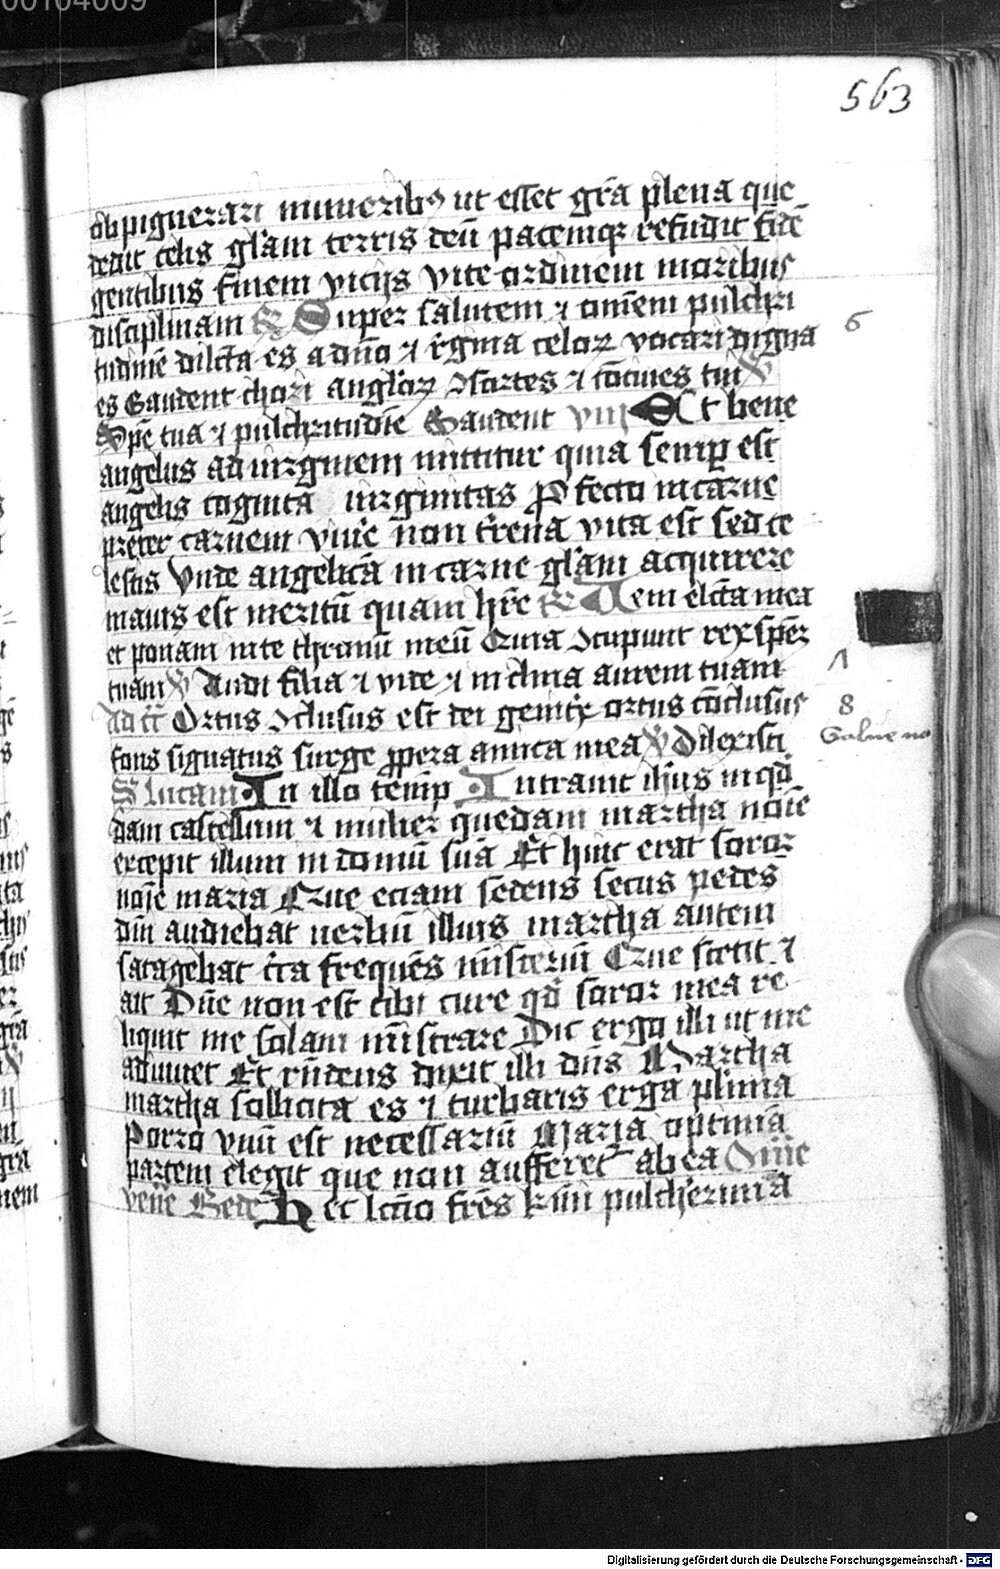 00104009
563
obpignerari muneribꝰ ut esset gr̄a plena que
dedit celis gl̄am terris deū pacemqꝫ refudit fidē
gentibus finem vicijs vite ordinem moribus
disciplinam ℟ Super salutem ⁊ om̄em pulchri
tudinē dilc̄ta es a dn̄o ⁊ r̄gina celoꝝ vocari digna
es Gaudent chori angl̄oꝝ ꝯsortes ⁊ cōciues tui ℣
Spē tua ⁊ pulchritudīe Gaudent viij Et bene
angelus ad virginem mittitur quia semꝑ est
angelis cognita virginitas Profecto in carne
preter carnem viue᷑ non t̄rena vita est sed ce
lestis Vnde angelicā in carne gl̄am acquirere
maius est meritū quam hr̄e ℟ Veni elc̄ta mea
et ponam in te thronū meū Quia ꝯcupiuit rex spēꝫ
tuam ℣ Audi filia ⁊ vide ⁊ inclina aurem tuam
Ortus ꝯclusus est dei genitx̄ ortus cōclusus
fons signatus surge ꝓpera amica mea ℣ Dilexisti
S Lucam In illo temp̄ Intrauit ih̄us in qd̄
dam castellum ⁊ mulier quedam martha noīe
excepit illum in domū suā Et huic erat soror
noīe maria Que eciam sedens secus pedes
dn̄i audiebat uerbū illius martha autem
satagebat c̄ra frequēs mīsteriū Que stetit ⁊
ait Dn̄e non est tibi cure qd̄ soror mea re
liquit me solam mīstrare Dic ergo illi ut me
adiuuet Et rn̄dens dixit illi dn̄s Martha
martha sollicita es ⁊ turbaris erga pl̄ima
Porro vnū est necessariū Maria optimā
partem elegit que non aufferet᷑ ab ea Om̄e
ven̄e Bede Hec lcc̄io fr̄es k̄mi pulcherrima
6
7
8
Salue no
Digitalisierung gefördert durch die Deutsche Forschungsgemeinschaft - DFG